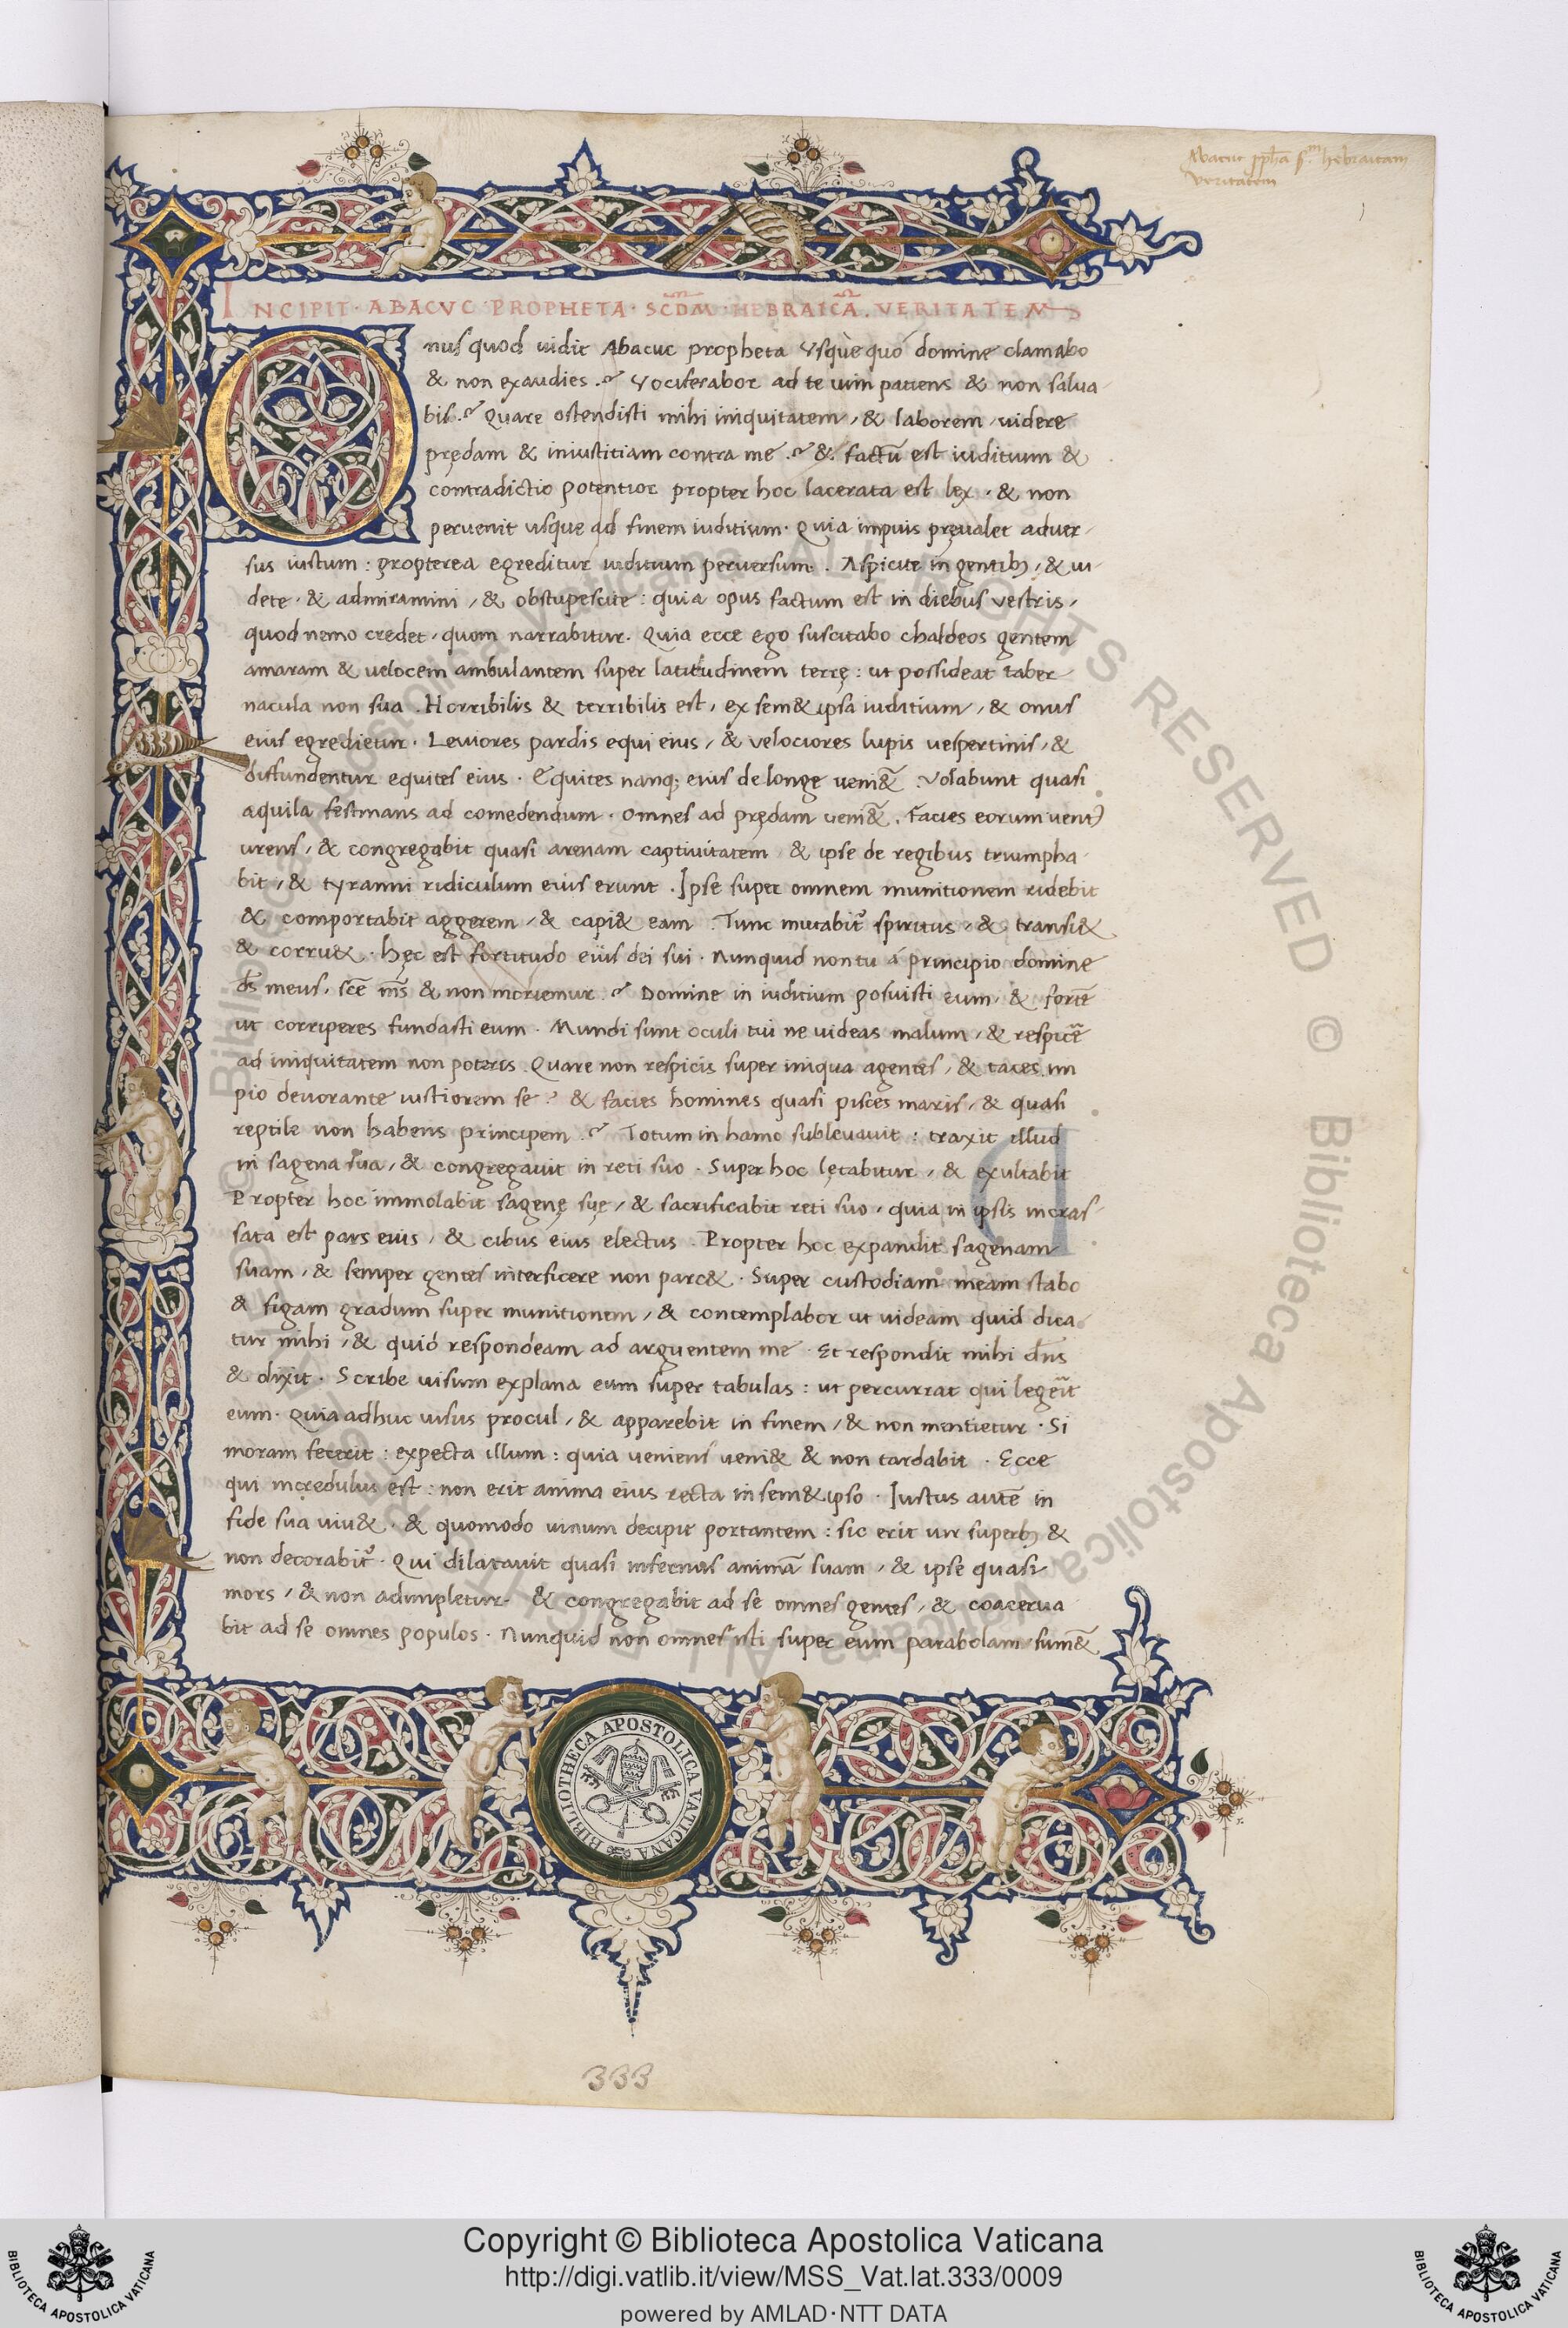 Abacuc ppħa s.m hebraicam
veritatem
INCIPIT · ABACVC · PROPHETA · SCDM · HEBRAICĀ . VERITATEM
Onus quod uidit Abacuc propheta Vsquequó domine clamabo
& non exaudies .? Vociferabor ad te uim patiens & non salua
bis .? Quare ostendisti mihi iniquitatem, & laborem, uidere
prędam & iniustitiam contra me .? &. factū est iuditium &
contradictio potentior propter hoc lacerata est lex . & non
peruenit usque ad finem iuditium. Quia impius pręualet aduer
sus iustum : propterea egreditur iuditium peruersum . Aspicite in gentibȝ, & ui
dete . & admiramini, & obstupescite : quia opus factum est in diebus vestris,
quod nemo credet, quom narrabitur. Quia ecce ego suscitabo chaldeos gentem
amaram & uelocem ambulantem super latitudinem terrę : ut possideat taber
nacula non sua . Horribilis & terribilis est, ex sem& ipsa iuditium, & onus
eius egredietur . Leuiores pardis equi eius, & velociores lupis uespertinis, &
diffundentur equites eius . Equites nanq; eius de longe ueni&̄ . Volabunt quasi
aquila festinans ad comedendum . Omnes ad prędam ueni&̄ . Facies eorum uent)
urens, & congregabit quasi arenam captiuitatem & ipse de regibus triumpha
bit, & tyranni ridiculum eius erunt . Ipse super omnem munitionem ridebit
& comportabit aggerem, & capi& eam . Tunc mutabit᷑ spiritus, & transi&
& corru& . hęc est fortitudo eius dei sui . Nunquid non tu á principio domine
ds̄ meus, scē ms̄ & non moriemur .? Domine in iuditium posuisti eum, & fortē
ut corriperes fundasti eum . Mundi sunt oculi tui ne uideas malum, & respicē
ad iniquitatem non poteris . Quare non respicis super iniqua agentes, & taces im
pio deuorante iustiorem se ? & facies homines quasi pisces maris, & quasi
reptile non habens principem .? Totum in hamo subleuauit : traxit illud
in sagena sua, & congregauit in reti suo . Super hoc lętabitur, & exultabit
Propter hoc immolabit sagenę suę, & sacrificabit reti suo, quia in ipsis incras
sata est pars eius, & cibus eius electus . Propter hoc expandit sagenam
suam, & semper gentes interficere non parc& . Super custodiam meam stabo
& figam gradum super munitionem, & contemplabor ut uideam quid dica
tur mihi, & quid respondeam ad arguentem me . Et respondit mihi dn̄s
& dixit . Scribe uisum explana eum super tabulas : ut percurrat qui legerit
eum . Quia adhuc uisus procul, & apparebit in finem, & non mentietur . Si
moram fecerit : expecta illum : quia ueniens ueni& & non tardabit . Ecce
qui incredulus est : non erit anima eius recta in sem& ipso . Iustus autē in
fide sua uiu& . & quomodo uinum decipit portantem : sic erit uir superbȝ &
non decorabit᷑ . Qui dilatauit quasi infernus animā suam, & ipse quasi
mors, & non adimpletur . & congregabit ad se omnes gentes, & coacerua
bit ad se omnes populos . Nunquid non omnes isti super eum parabolam sum&̄
BIBLIOTHECA APOSTOLICA VATICANA
333
© Biblioteca Apostolica Vaticana ALL RIGHTS RESERVED
Copyright © Biblioteca Apostolica Vaticana
http://digi.vatlib.it/view/MSS_Vat.lat.333/0009
powered by AMLAD·NTT DATA
BIBLIOTECA APOSTOLICA VATICANA
BIBLIOTECA APOSTOLICA VATICANA